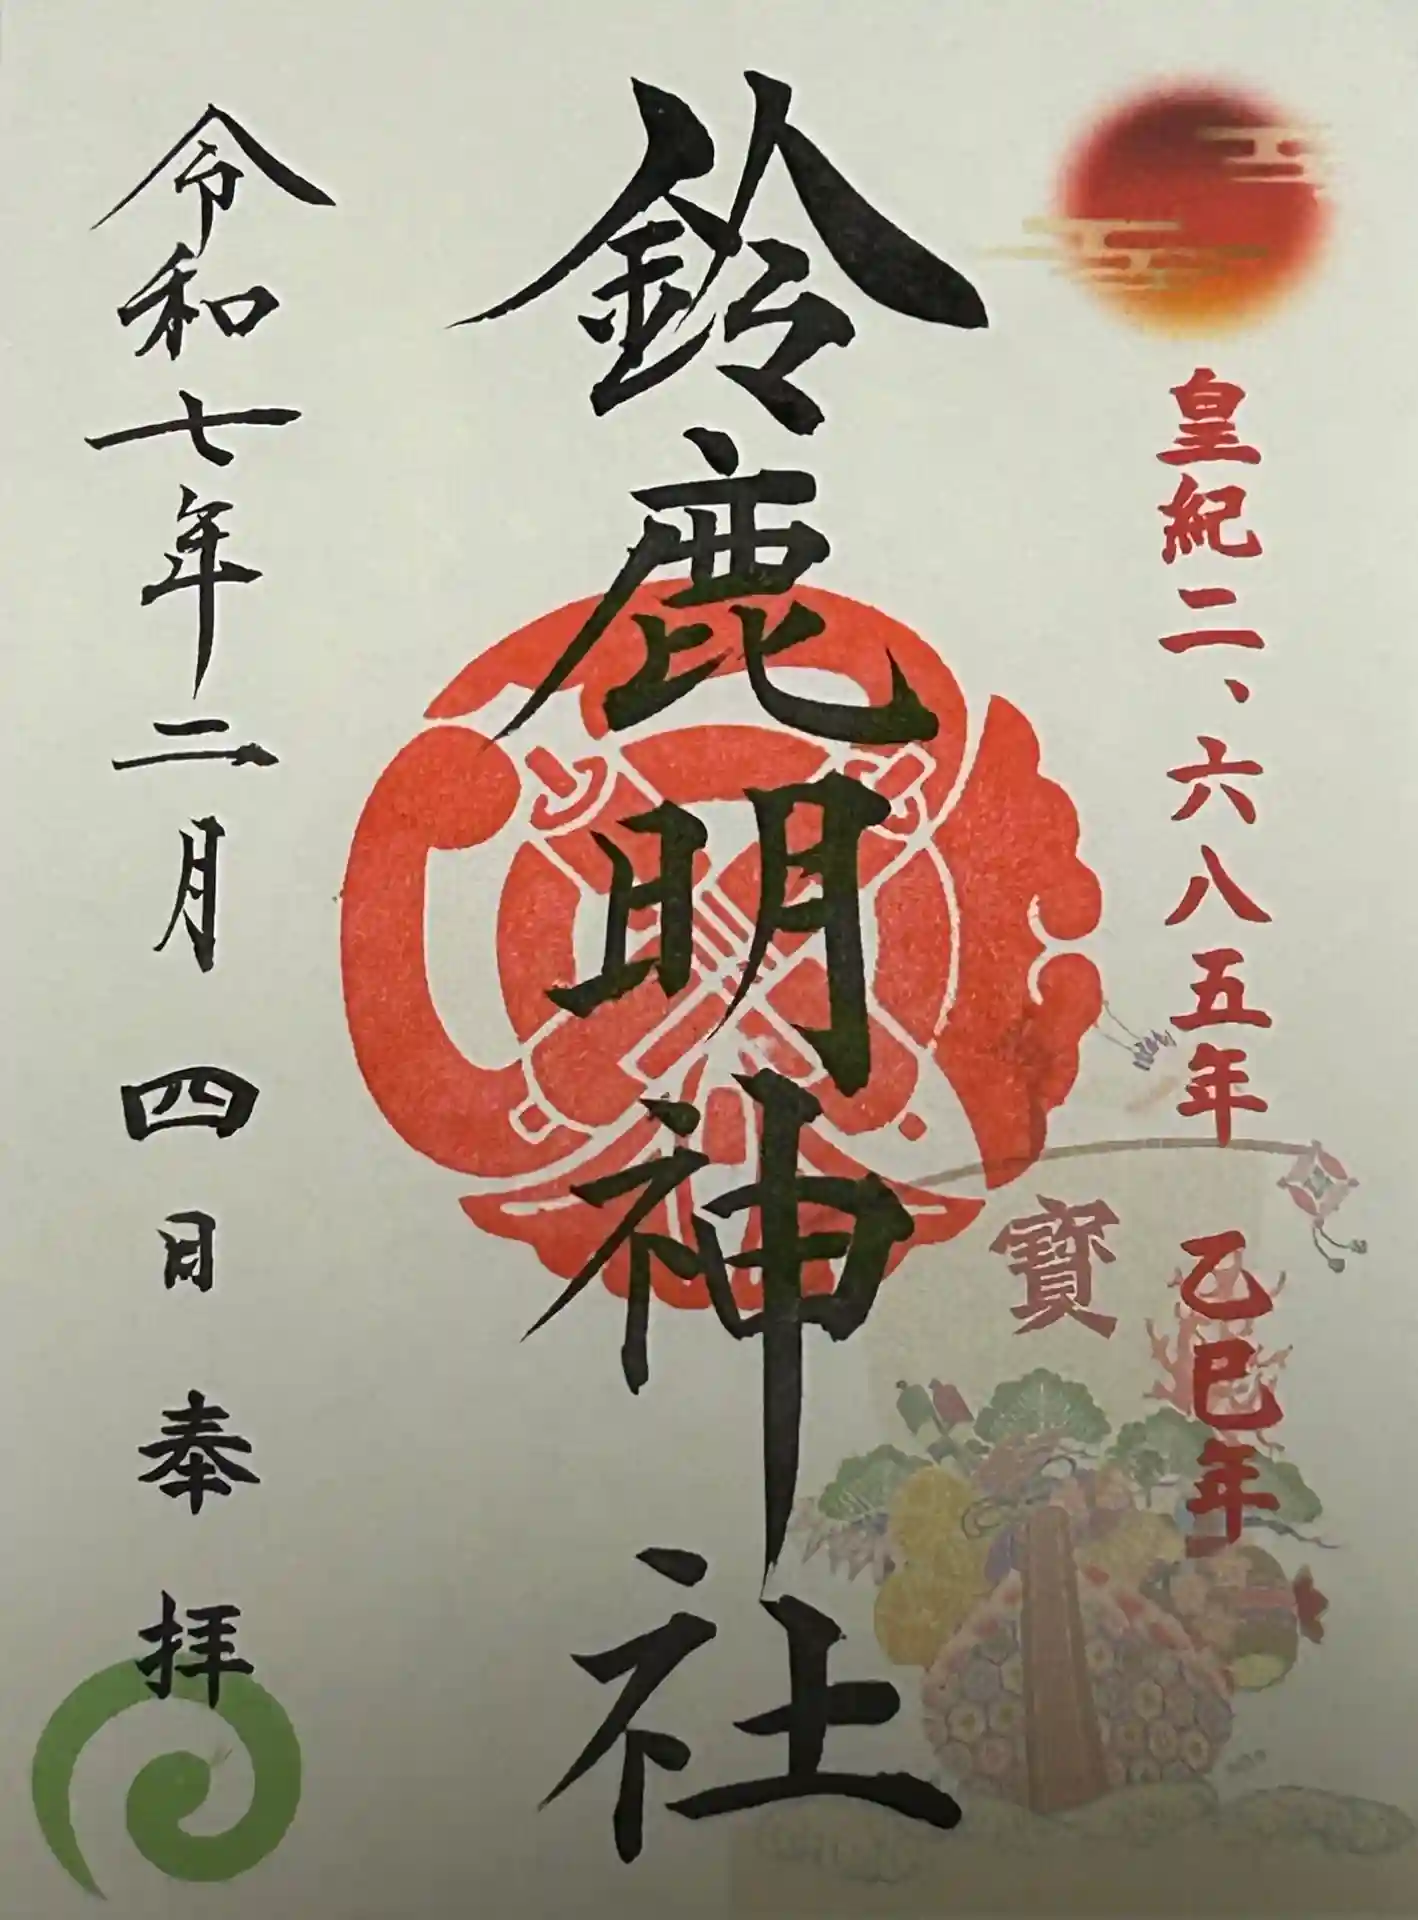 皇紀二、六八五年 乙巳年
寶
鈴鹿明神社
令和七年二月四日奉拝